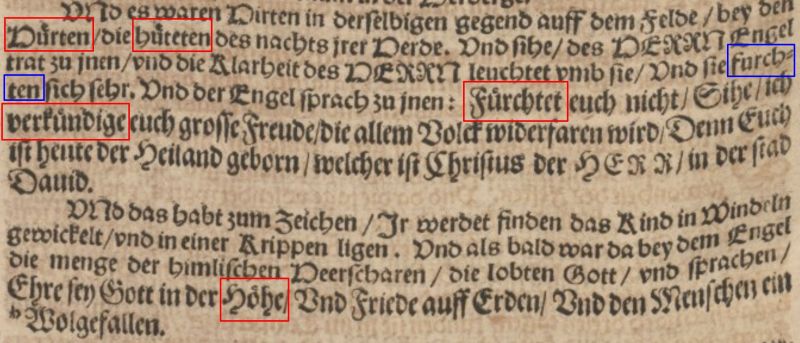 VNd es waren Hirten in derselbigen gegend auff dem Felde / bey den
Hürten / die hüteten des nachts jrer Herde. Vnd sihe / des HERRN Engel
trat zu jnen / vnd die Klarheit des HERRN leuchtet vmb sie / Vnd sie furch=
ten sich sehr. Vnd der Engel sprach zu jnen: Fürchtet euch nicht / Sihe / ich
verkündige euch grosse Freude / die allem Volck widerfaren wird / Denn Euch
ist heute der Heiland geborn / welcher ist Christus der HERR / in der stad
Dauid.
VNd das habt zum Zeichen / Jr werdet finden das Kind in Windeln
gewickelt / vnd in einer Krippen ligen. Vnd als bald war da bey dem Engel
die menge der himlischen Heerscharen / die lobten Gott / vnd sprachen /
Ehre sey Gott in der Höhe / Vnd Friede auff Erden / Vnd den Menschen ein
b Wolgefallen.